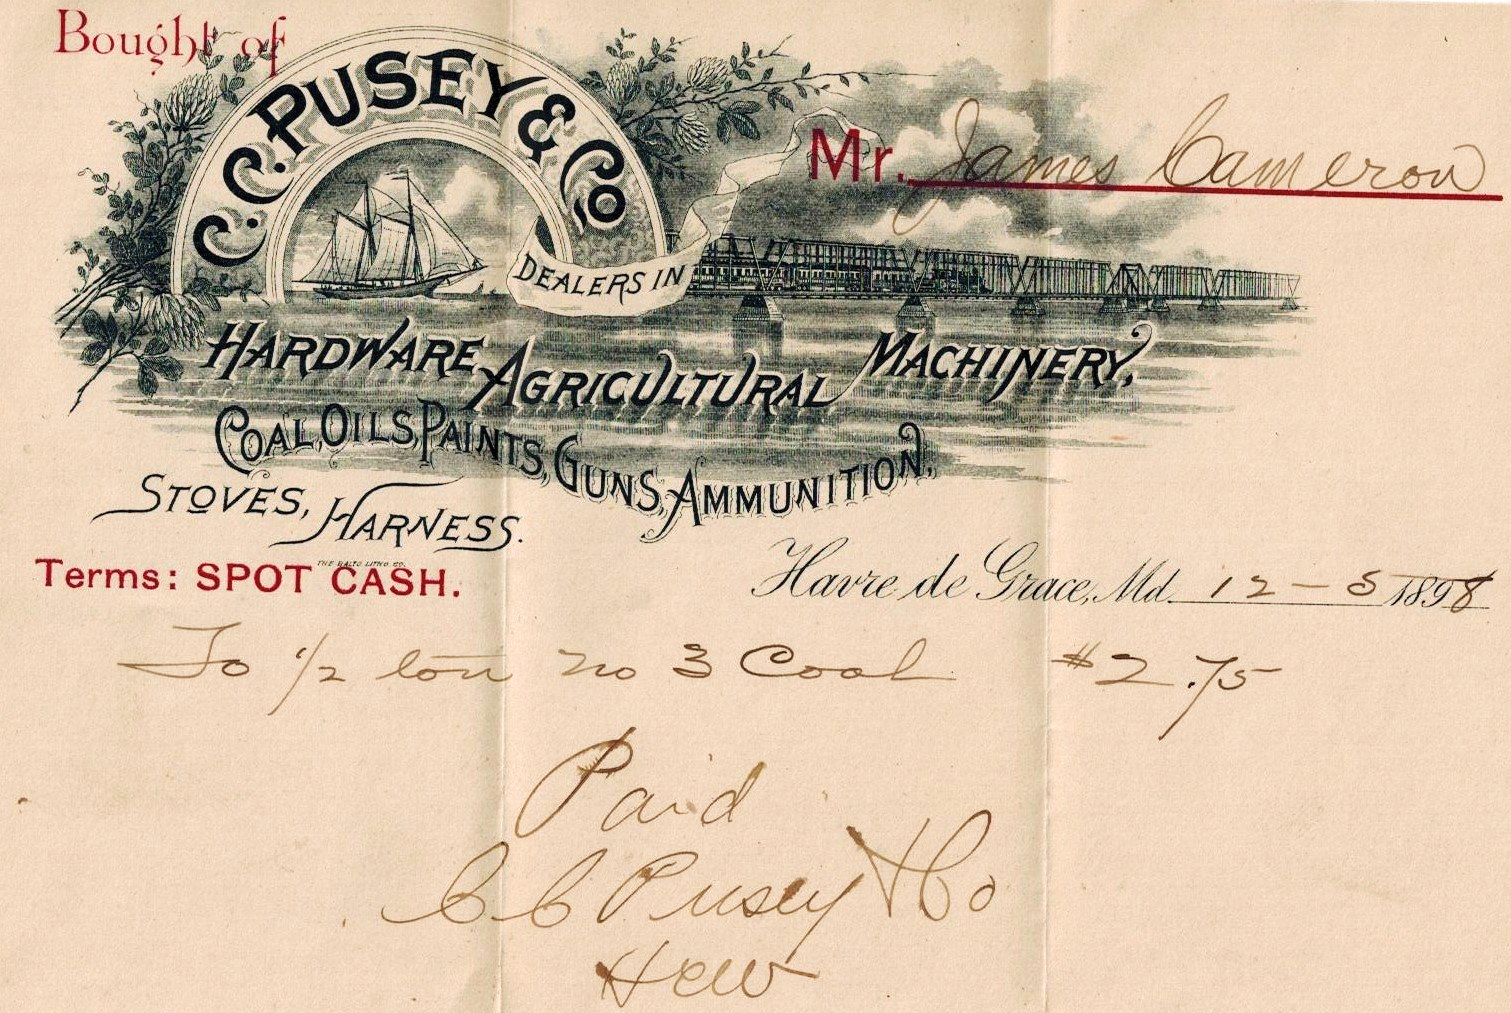 Bought of
C. C. PUSEY & Co
Mr. James Cameron
DEALERS IN
HARDWARE, AGRICULTURAL MACHINERY,
COAL, OILS, PAINTS, GUNS, AMMUNITION,
STOVES, HARNESS.
THE BALTO. LITHO. CO.
Terms: SPOT CASH.
Havre de Grace, Md. 12 - 5 1898
To 1/2 ton no 3 Coal $2.75
Paid
C C Pusey & Co